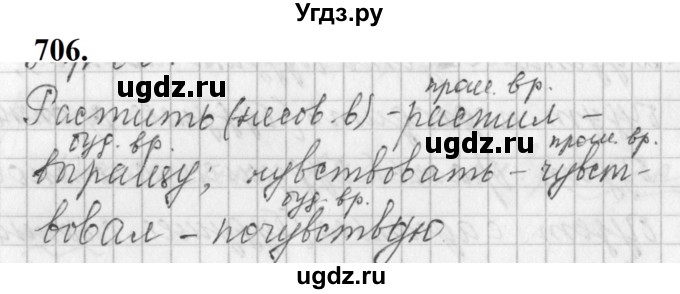 Угдз.ру
706.
прош. вр.
Растить (несов. в) - растил -
буд. вр. прош. вр.
выращу; чувствовать - чувст-
буд. вр.
вовал - почувствую
ugdz.ru
ugdz.ru
ugdz.ru
ugdz.ru